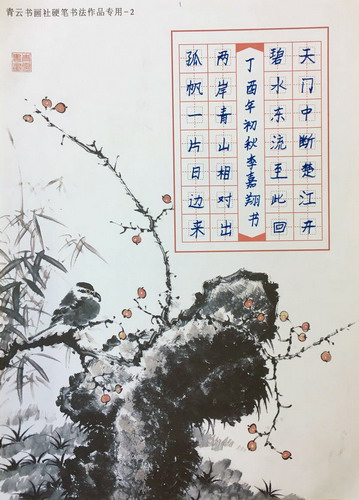 青云书画社硬笔书法作品专用-2
天门中断楚江开
碧水东流至此回
丁酉年初秋李嘉翔书
两岸青山相对出
孤帆一片日边来